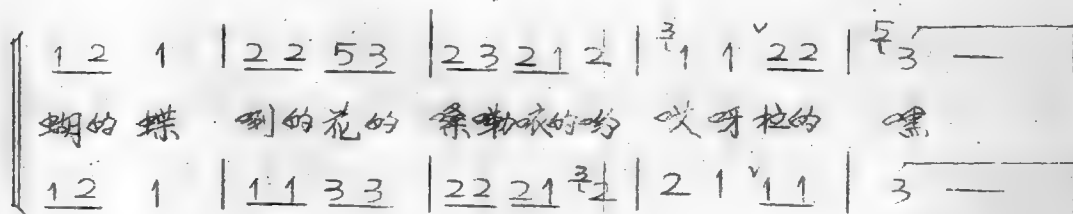 1 2 1 | 2 2 5 3 | 2 3 2 1 2 | 3 1 1 ∨ 2 2 | 5 3 —
蝴的 蝶 唎的花的 桑嘞哝的哟 哎呀拉的 嘿
1 2 1 | 1 1 3 3 | 2 2 2 1 3 2 | 2 1 ∨ 1 1 | 3 —